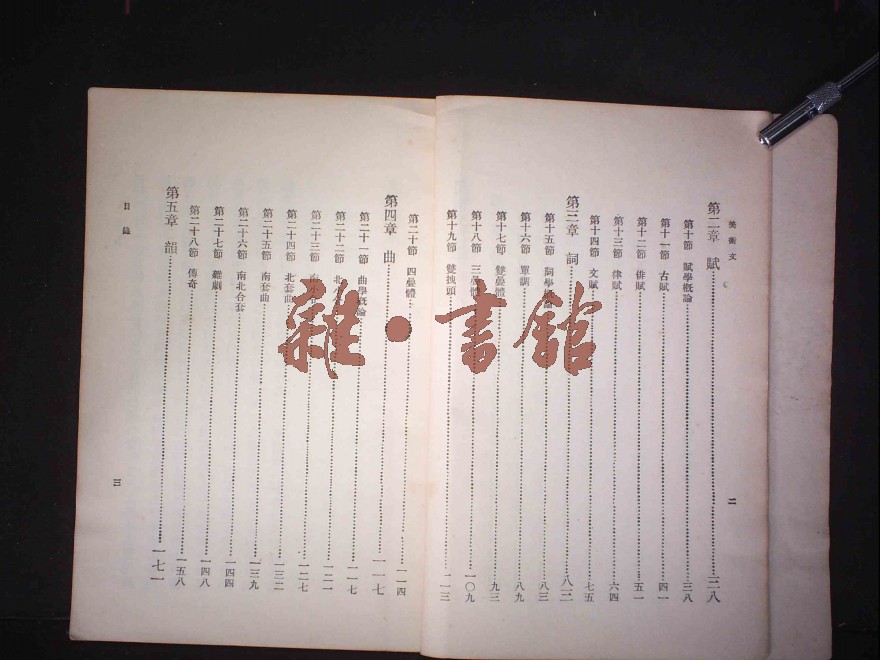 美術文
第二章　賦……三八
第十節　賦學概論……三八
第十一節　古賦……四一
第十二節　俳賦……五一
第十三節　律賦……六四
第十四節　文賦……七五
第三章　詞……八三
第十五節　詞學概論……八三
第十六節　單調……八九
第十七節　雙疊體……九三
第十八節　三疊體……一〇九
第十九節　雙拽頭……一一三
二
第二十節　四疊體……一一四
第四章　曲……一一七
第二十一節　曲學概論……一一七
第二十二節　北小……一二一
第二十三節　南小……一二七
第二十四節　北套曲……一三二
第二十五節　南套曲……一三九
第二十六節　南北合套……一四四
第二十七節　雜劇……一四八
第二十八節　傳奇……一五八
第五章　韻……一七一
目錄
三
雜·書館